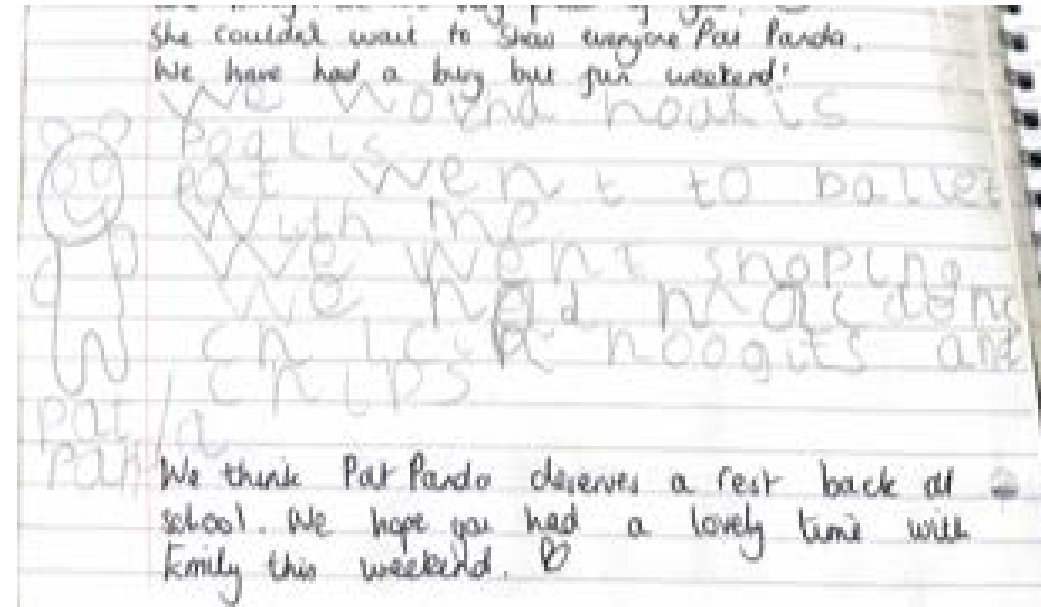 she couldn't wait to show everyone Pat Panda.
We have had a busy but fun weekend!
We
poakis
Pat went to ballet
With me
We went shoping
We had macdond
chicin noogits and
chips
Pat
Panda
We think Pat Panda deserves a rest back at
school. We hope you had a lovely time with
Emily this weekend.